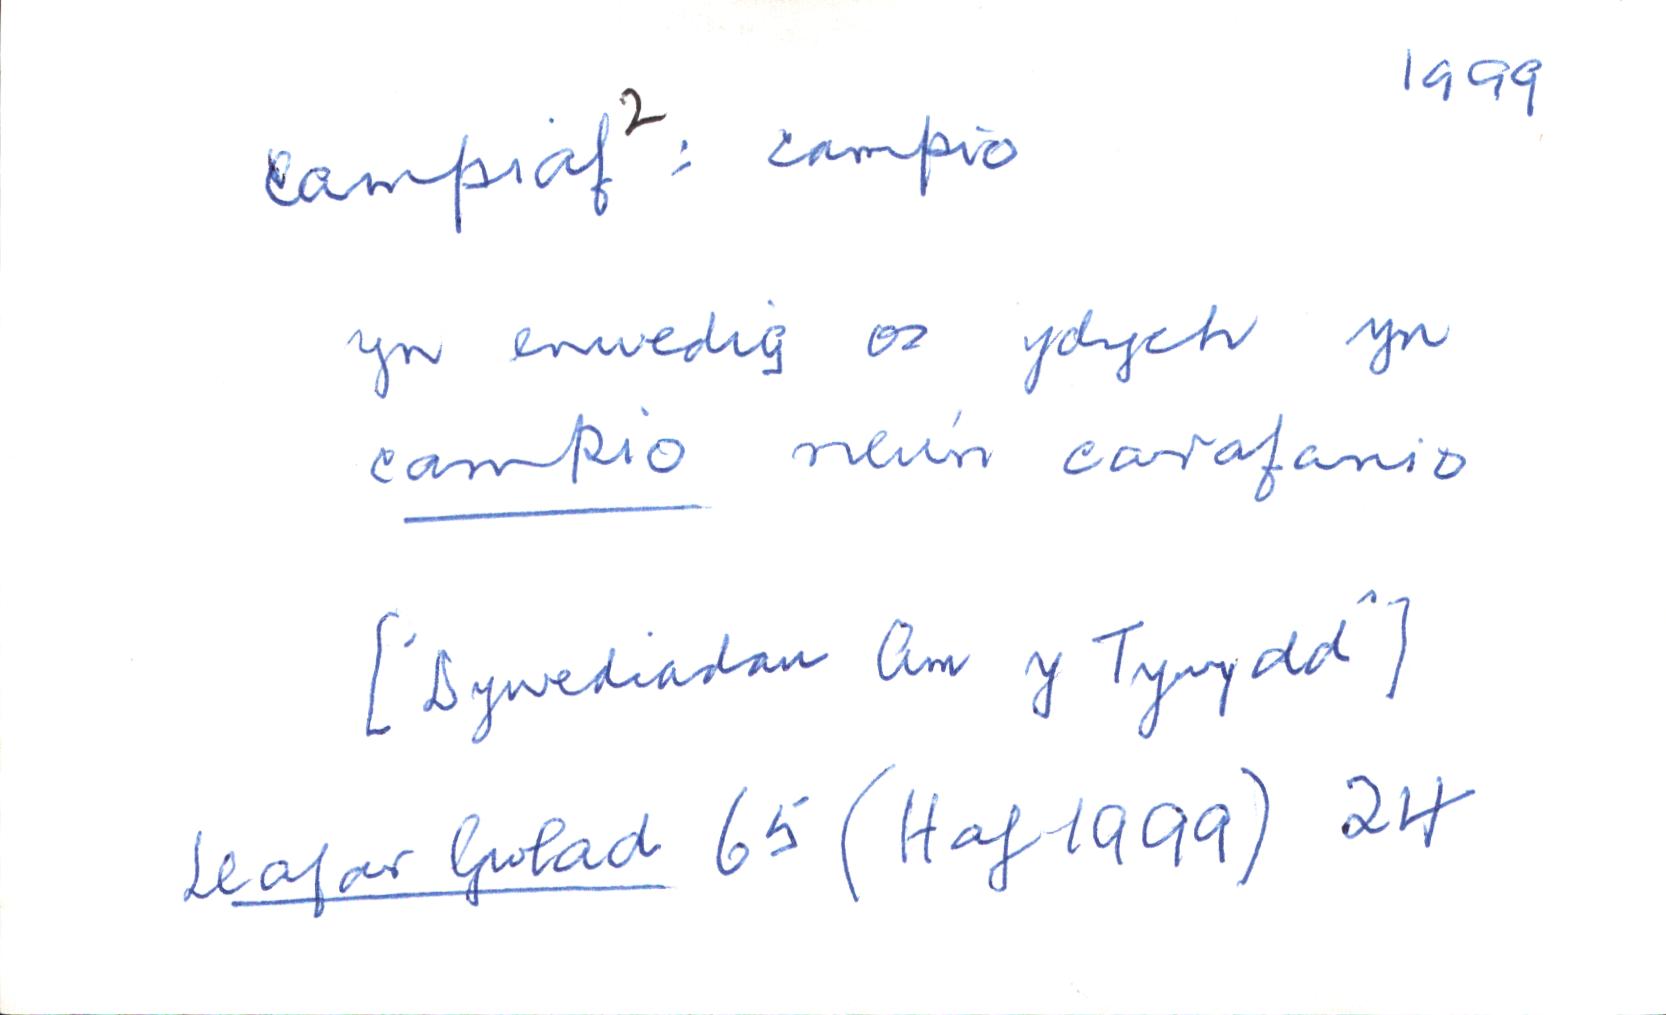 1999
campiaf²: campio
yn enwedig os ydych yn
campio neu'n carafanio
['Dywediadau Am y Tywydd']
Llafar Gwlad 65 (Haf 1999) 24